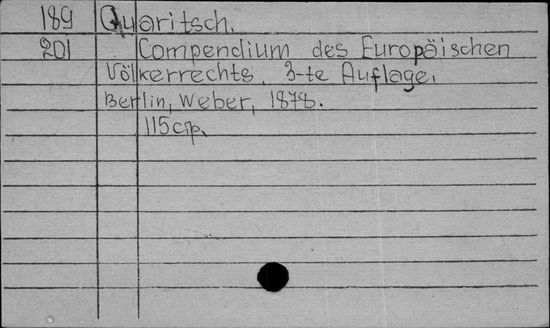 189 Quaritsch.
201 Compendium des Europäischen
Völkerrechts. 3-te Auflage.
Berlin, Weber, 1878.
115 стр.